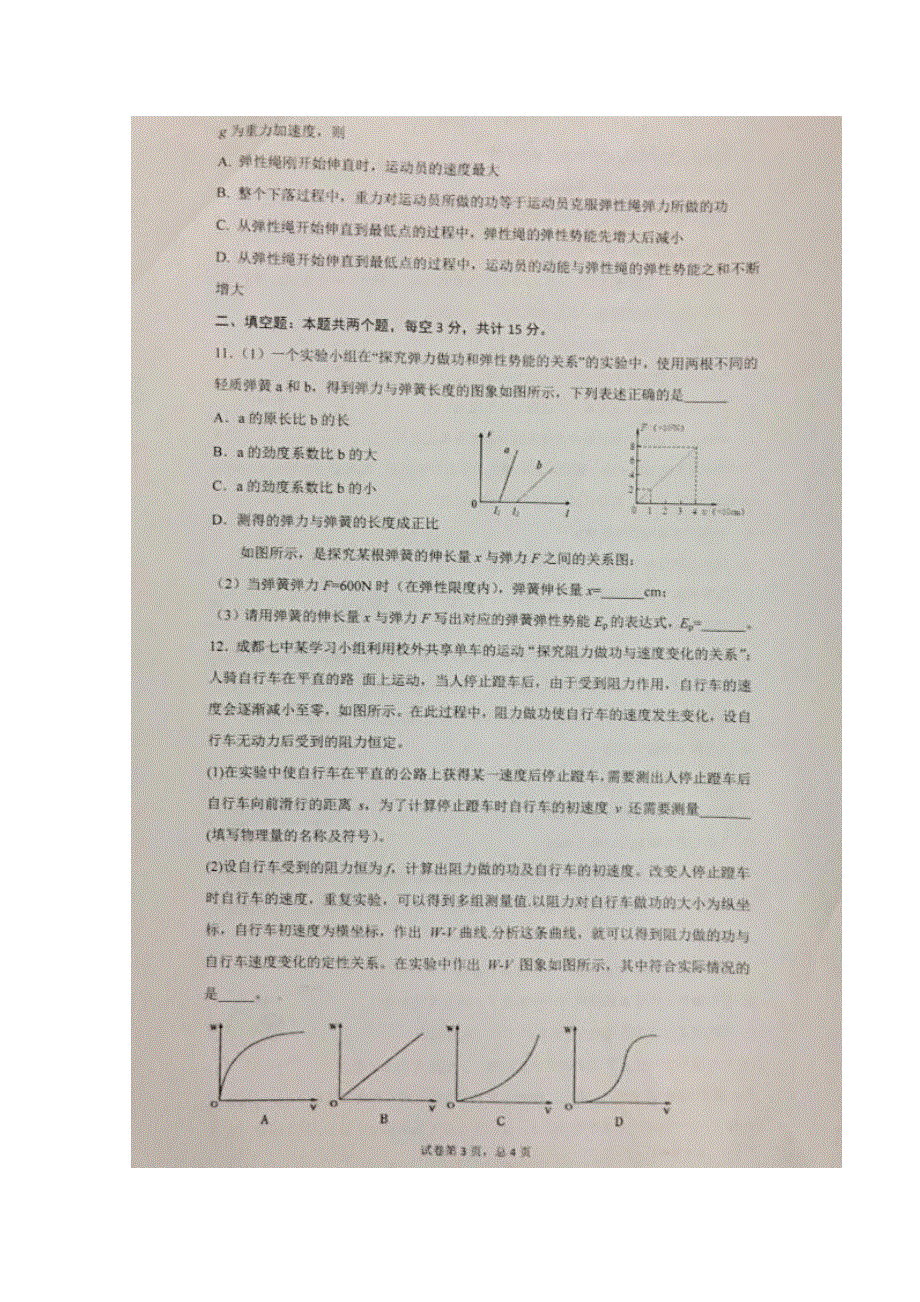 g 为重力加速度，则
A. 弹性绳刚开始伸直时，运动员的速度最大
B. 整个下落过程中，重力对运动员所做的功等于运动员克服弹性绳弹力所做的功
C. 从弹性绳开始伸直到最低点的过程中，弹性绳的弹性势能先增大后减小
D. 从弹性绳开始伸直到最低点的过程中，运动员的动能与弹性绳的弹性势能之和不断
增大
二、填空题：本题共两个题，每空 3 分，共计 15 分。
11.（1）一个实验小组在“探究弹力做功和弹性势能的关系”的实验中，使用两根不同的
轻质弹簧 a 和 b，得到弹力与弹簧长度的图象如图所示，下列表述正确的是______
A．a 的原长比 b 的长
B．a 的劲度系数比 b 的大
C．a 的劲度系数比 b 的小
D．测得的弹力与弹簧的长度成正比
F a b 0 l₁ l₂ l
F 8 6 4 2 0 1 2 3 4 x
如图所示，是探究某根弹簧的伸长量 x 与弹力 F 之间的关系图：
（2）当弹簧弹力 F=600N 时（在弹性限度内），弹簧伸长量 x=______cm；
（3）请用弹簧的伸长量 x 与弹力 F 写出对应的弹簧弹性势能 Eₚ 的表达式，Eₚ=______。
12．成都七中某学习小组利用校外共享单车的运动“探究阻力做功与速度变化的关系”；
人骑自行车在平直的路 面上运动，当人停止蹬车后，由于受到阻力作用，自行车的速
度会逐渐减小至零，如图所示。在此过程中，阻力做功使自行车的速度发生变化，设自
行车无动力后受到的阻力恒定。
(1)在实验中使自行车在平直的公路上获得某一速度后停止蹬车，需要测出人停止蹬车后
自行车向前滑行的距离 s，为了计算停止蹬车时自行车的初速度 v 还需要测量______
(填写物理量的名称及符号)。
(2)设自行车受到的阻力恒为 f，计算出阻力做的功及自行车的初速度。改变人停止蹬车
时自行车的速度，重复实验，可以得到多组测量值.以阻力对自行车做功的大小为纵坐
标，自行车初速度为横坐标，作出 W-V 曲线.分析这条曲线，就可以得到阻力做的功与
自行车速度变化的定性关系。在实验中作出 W-V 图象如图所示，其中符合实际情况的
是_____。
W O V W O V W O V W O V
A B C D
试卷第 3 页，总 4 页